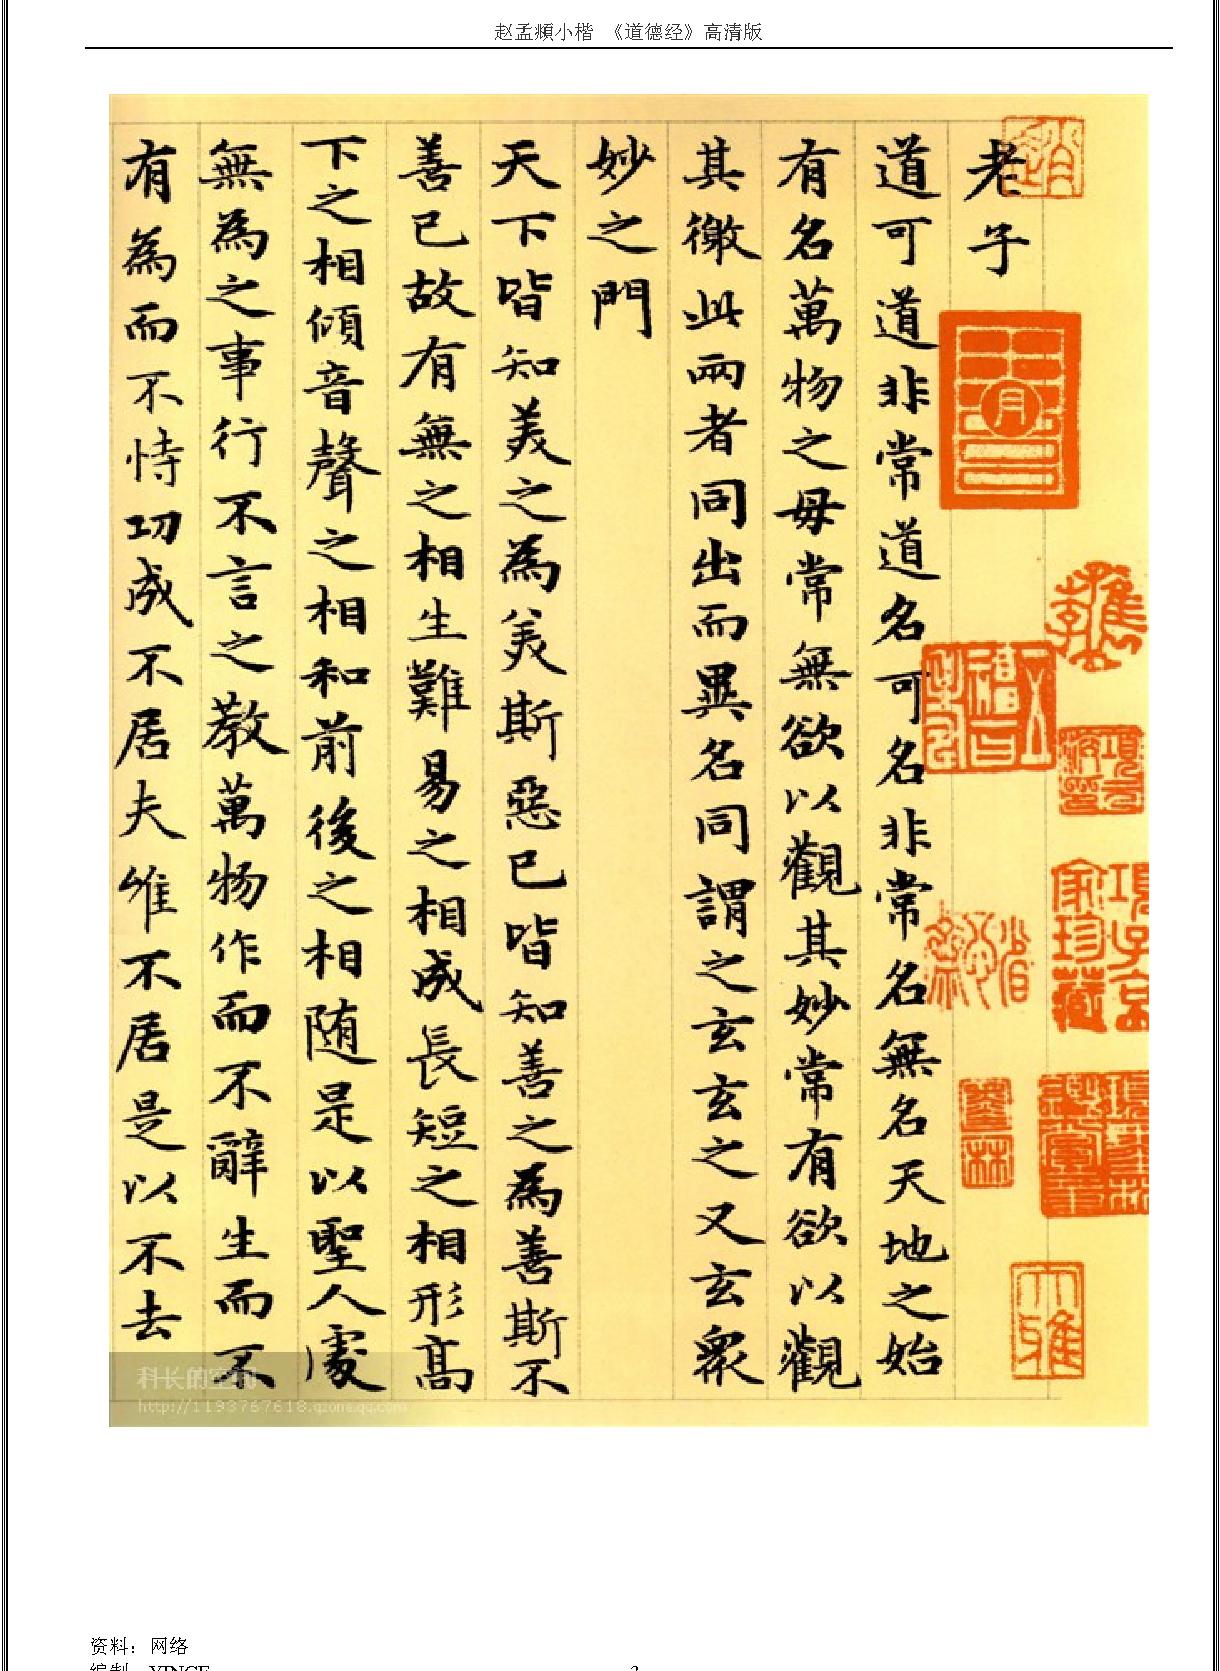 赵孟頫小楷 《道德经》高清版
老子
道可道非常道名可名非常名無名天地之始
有名萬物之母常無欲以觀其妙常有欲以觀
其徼此兩者同出而異名同謂之玄玄之又玄衆
妙之門
天下皆知美之為美斯惡已皆知善之為善斯不
善已故有無之相生難易之相成長短之相形高
下之相傾音聲之相和前後之相随是以聖人處
無為之事行不言之教萬物作而不辭生而不
有為而不恃功成不居夫唯不居是以不去
項子京家珍藏
墨林
科长的空间
http://1193767618.qzone.qq.com
资料：网络